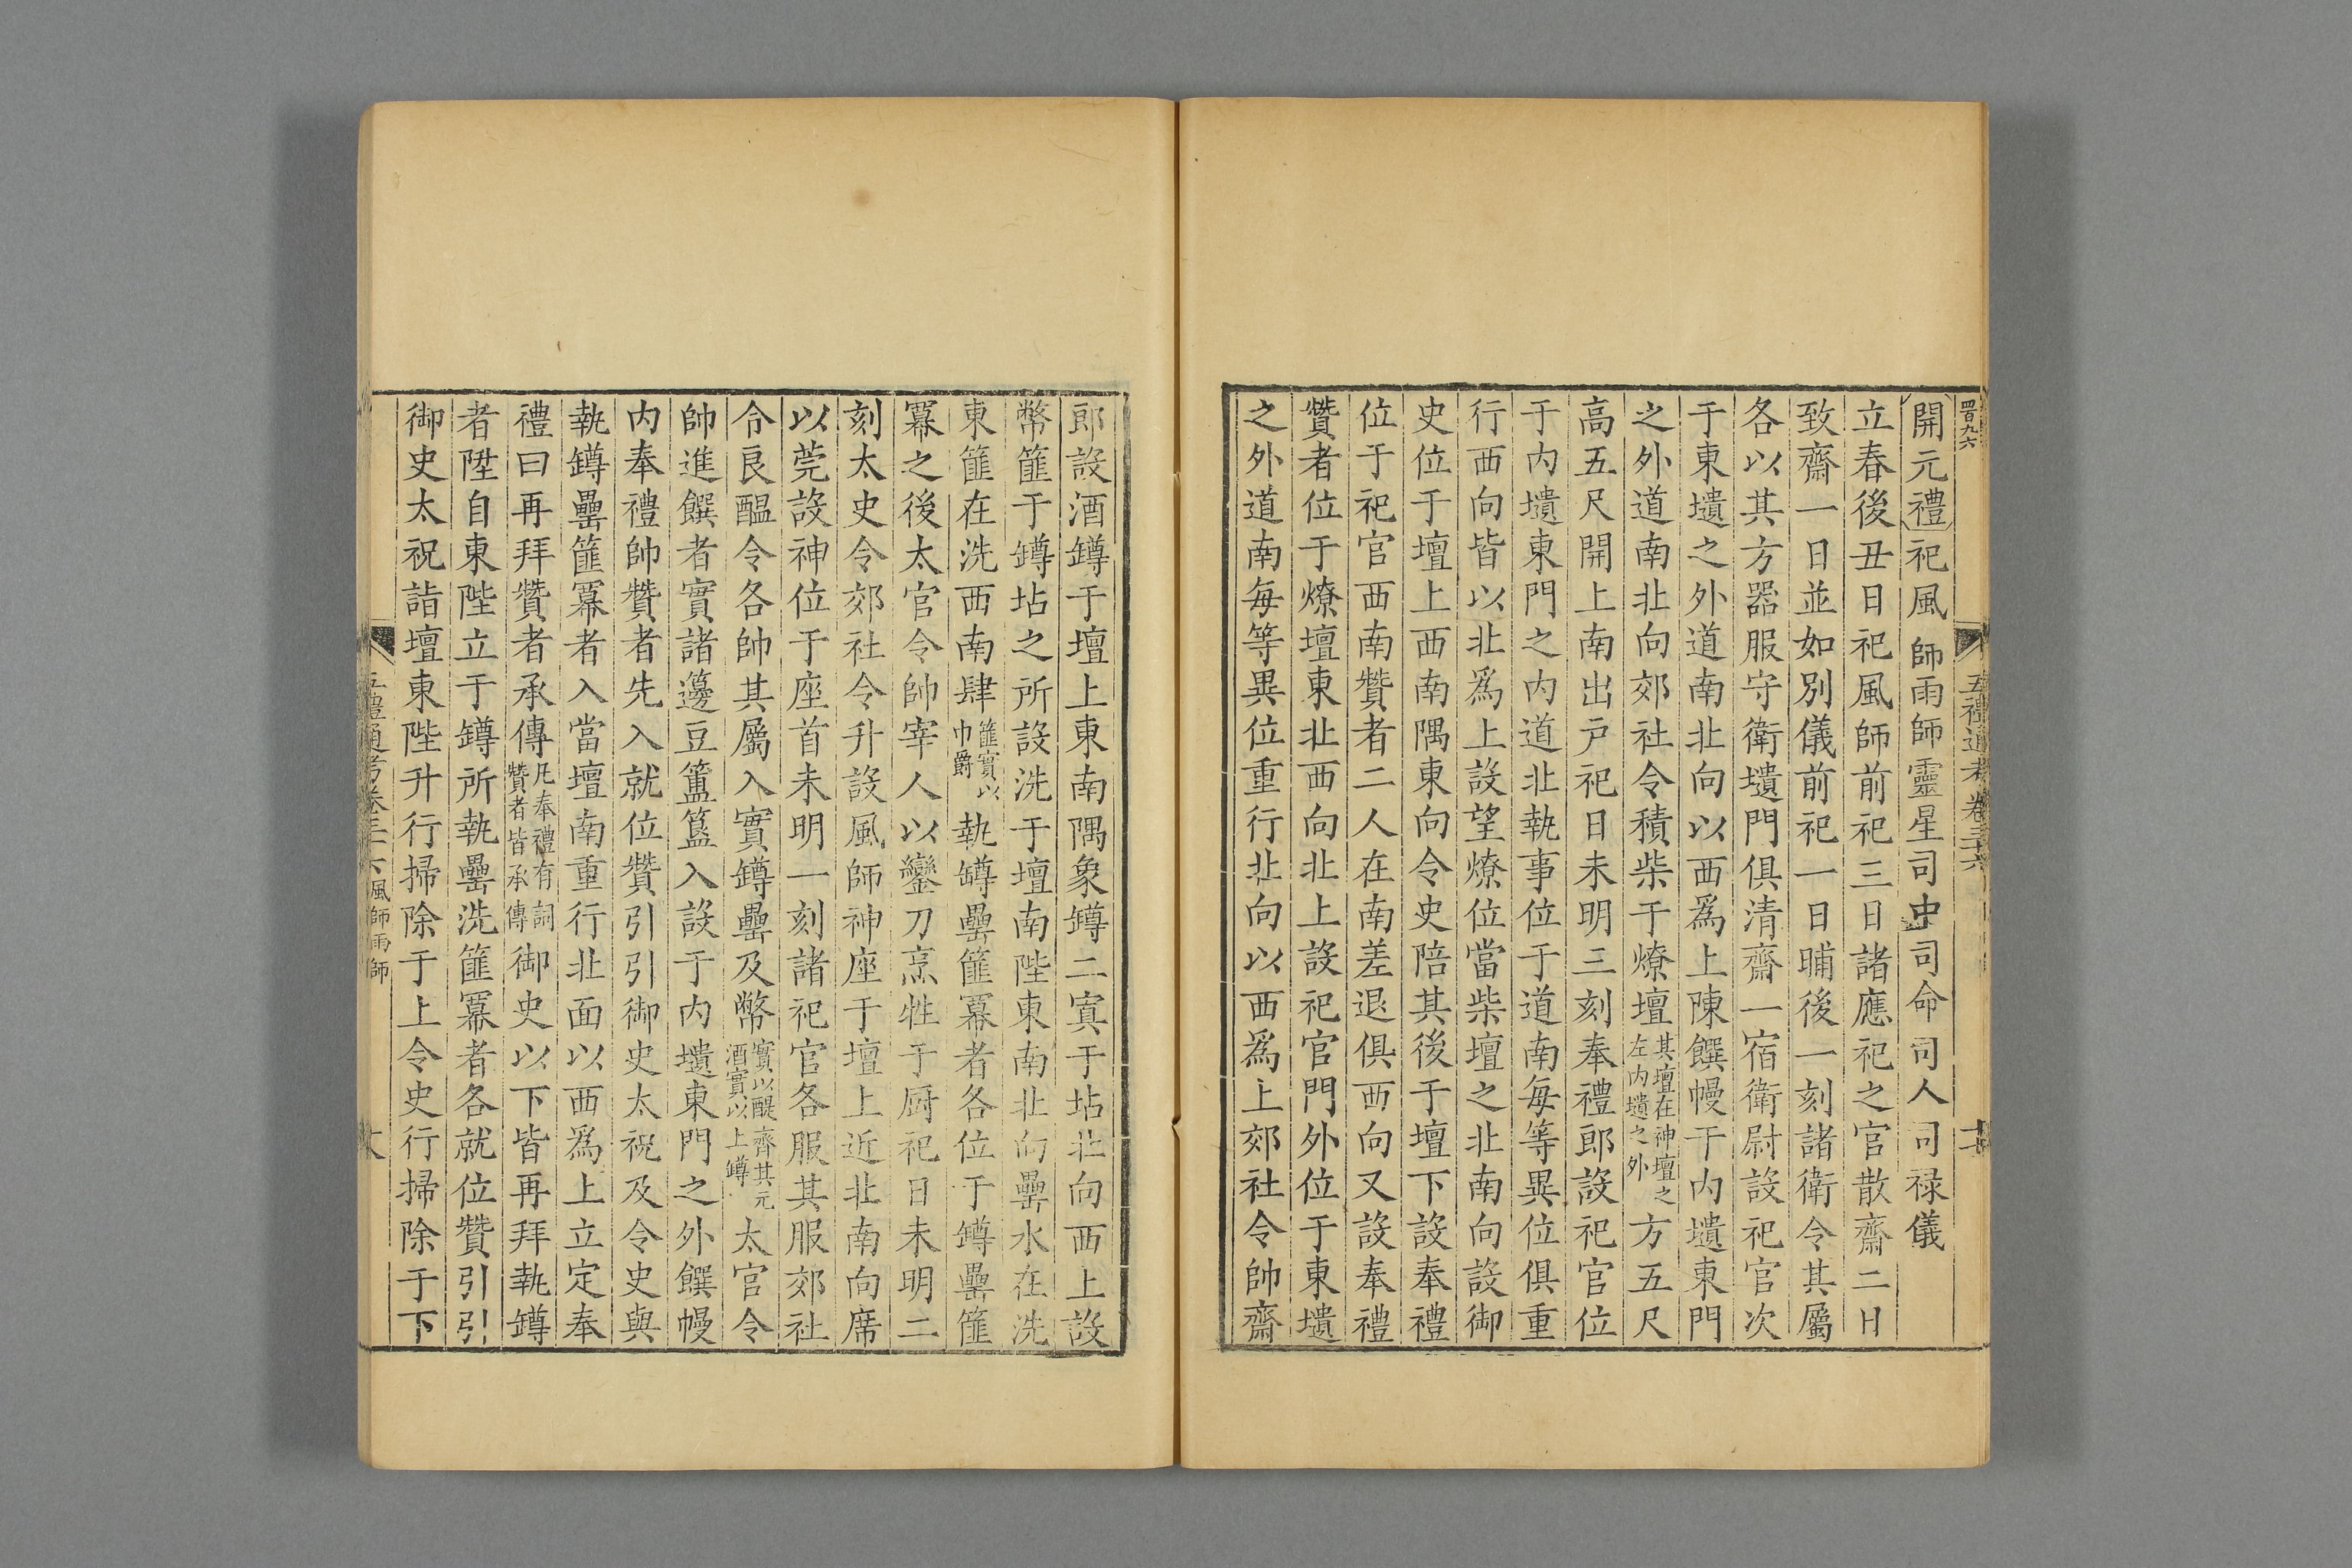 四百九六
五禮通考 卷三十六
開元禮祀風師雨師靈星司中司命司人司祿儀
立春後丑日祀風師前祀三日諸應祀之官散齋二日
致齋一日並如別儀前祀一日晡後一刻諸衛令其屬
各以其方器服守衛壝門俱清齋一宿衛尉設祀官次
于東壝之外道南北向以西爲上陳饌幔于內壝東門
之外道南北向郊社令積柴于燎壇其壇在神壇之左內壝之外方五尺
高五尺開上南出戸祀日未明三刻奉禮郎設祀官位
于內壝東門之內道北執事位于道南每等異位俱重
行西向皆以北爲上設望燎位當柴壇之北南向設御
史位于壇上西南隅東向令史陪其後于壇下設奉禮
位于祀官西南贊者二人在南差退俱西向又設奉禮
贊者位于燎壇東北西向北上設祀官門外位于東壝
之外道南每等異位重行北向以西爲上郊社令帥齋
郎設酒罇于壇上東南隅象罇二寘于坫北向西上設
幣篚于罇坫之所設洗于壇南陛東南北向罍水在洗
東篚在洗西南肆篚實以巾爵執罇罍篚冪者各位于罇罍篚
冪之後太官令帥宰人以鑾刀烹牲于厨祀日未明二
刻太史令郊社令升設風師神座于壇上近北南向席
以莞設神位于座首未明一刻諸祀官各服其服郊社
令良醞令各帥其屬入實罇罍及幣實以醍齊其元酒實以上罇太官令
帥進饌者實諸籩豆簠簋入設于內壝東門之外饌幔
內奉禮帥贊者先入就位贊引引御史太祝及令史與
執罇罍篚冪者入當壇南重行北面以西爲上立定奉
禮曰再拜贊者承傳凡奉禮有詞贊者皆承傳御史以下皆再拜執罇
者陞自東陛立于罇所執罍洗篚冪者各就位贊引引
御史太祝詣壇東陛升行掃除于上令史行掃除于下
五禮通考卷三十六 風師雨師